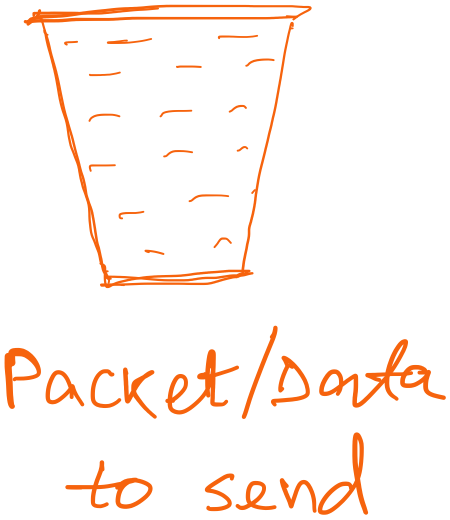 Packet/Data
to send